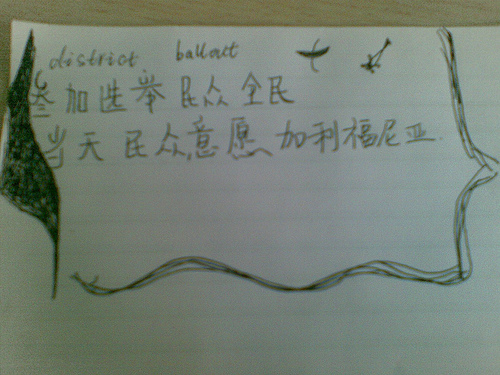 district ballout
参加选举民众全民
当天民众意愿加利福尼亚